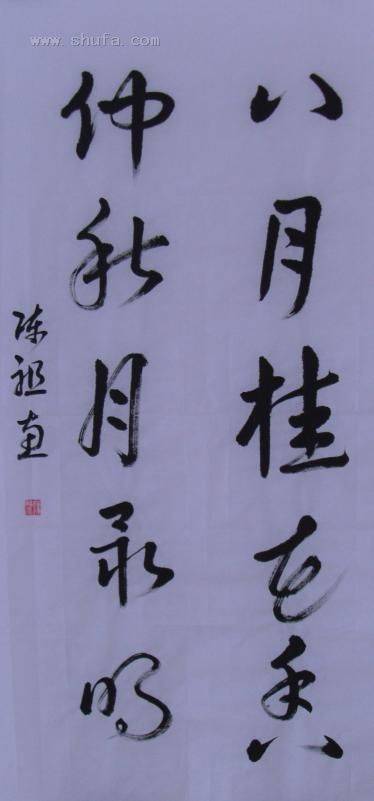 八月桂花香
仲秋月最明
陈祖南
www.shufa.com